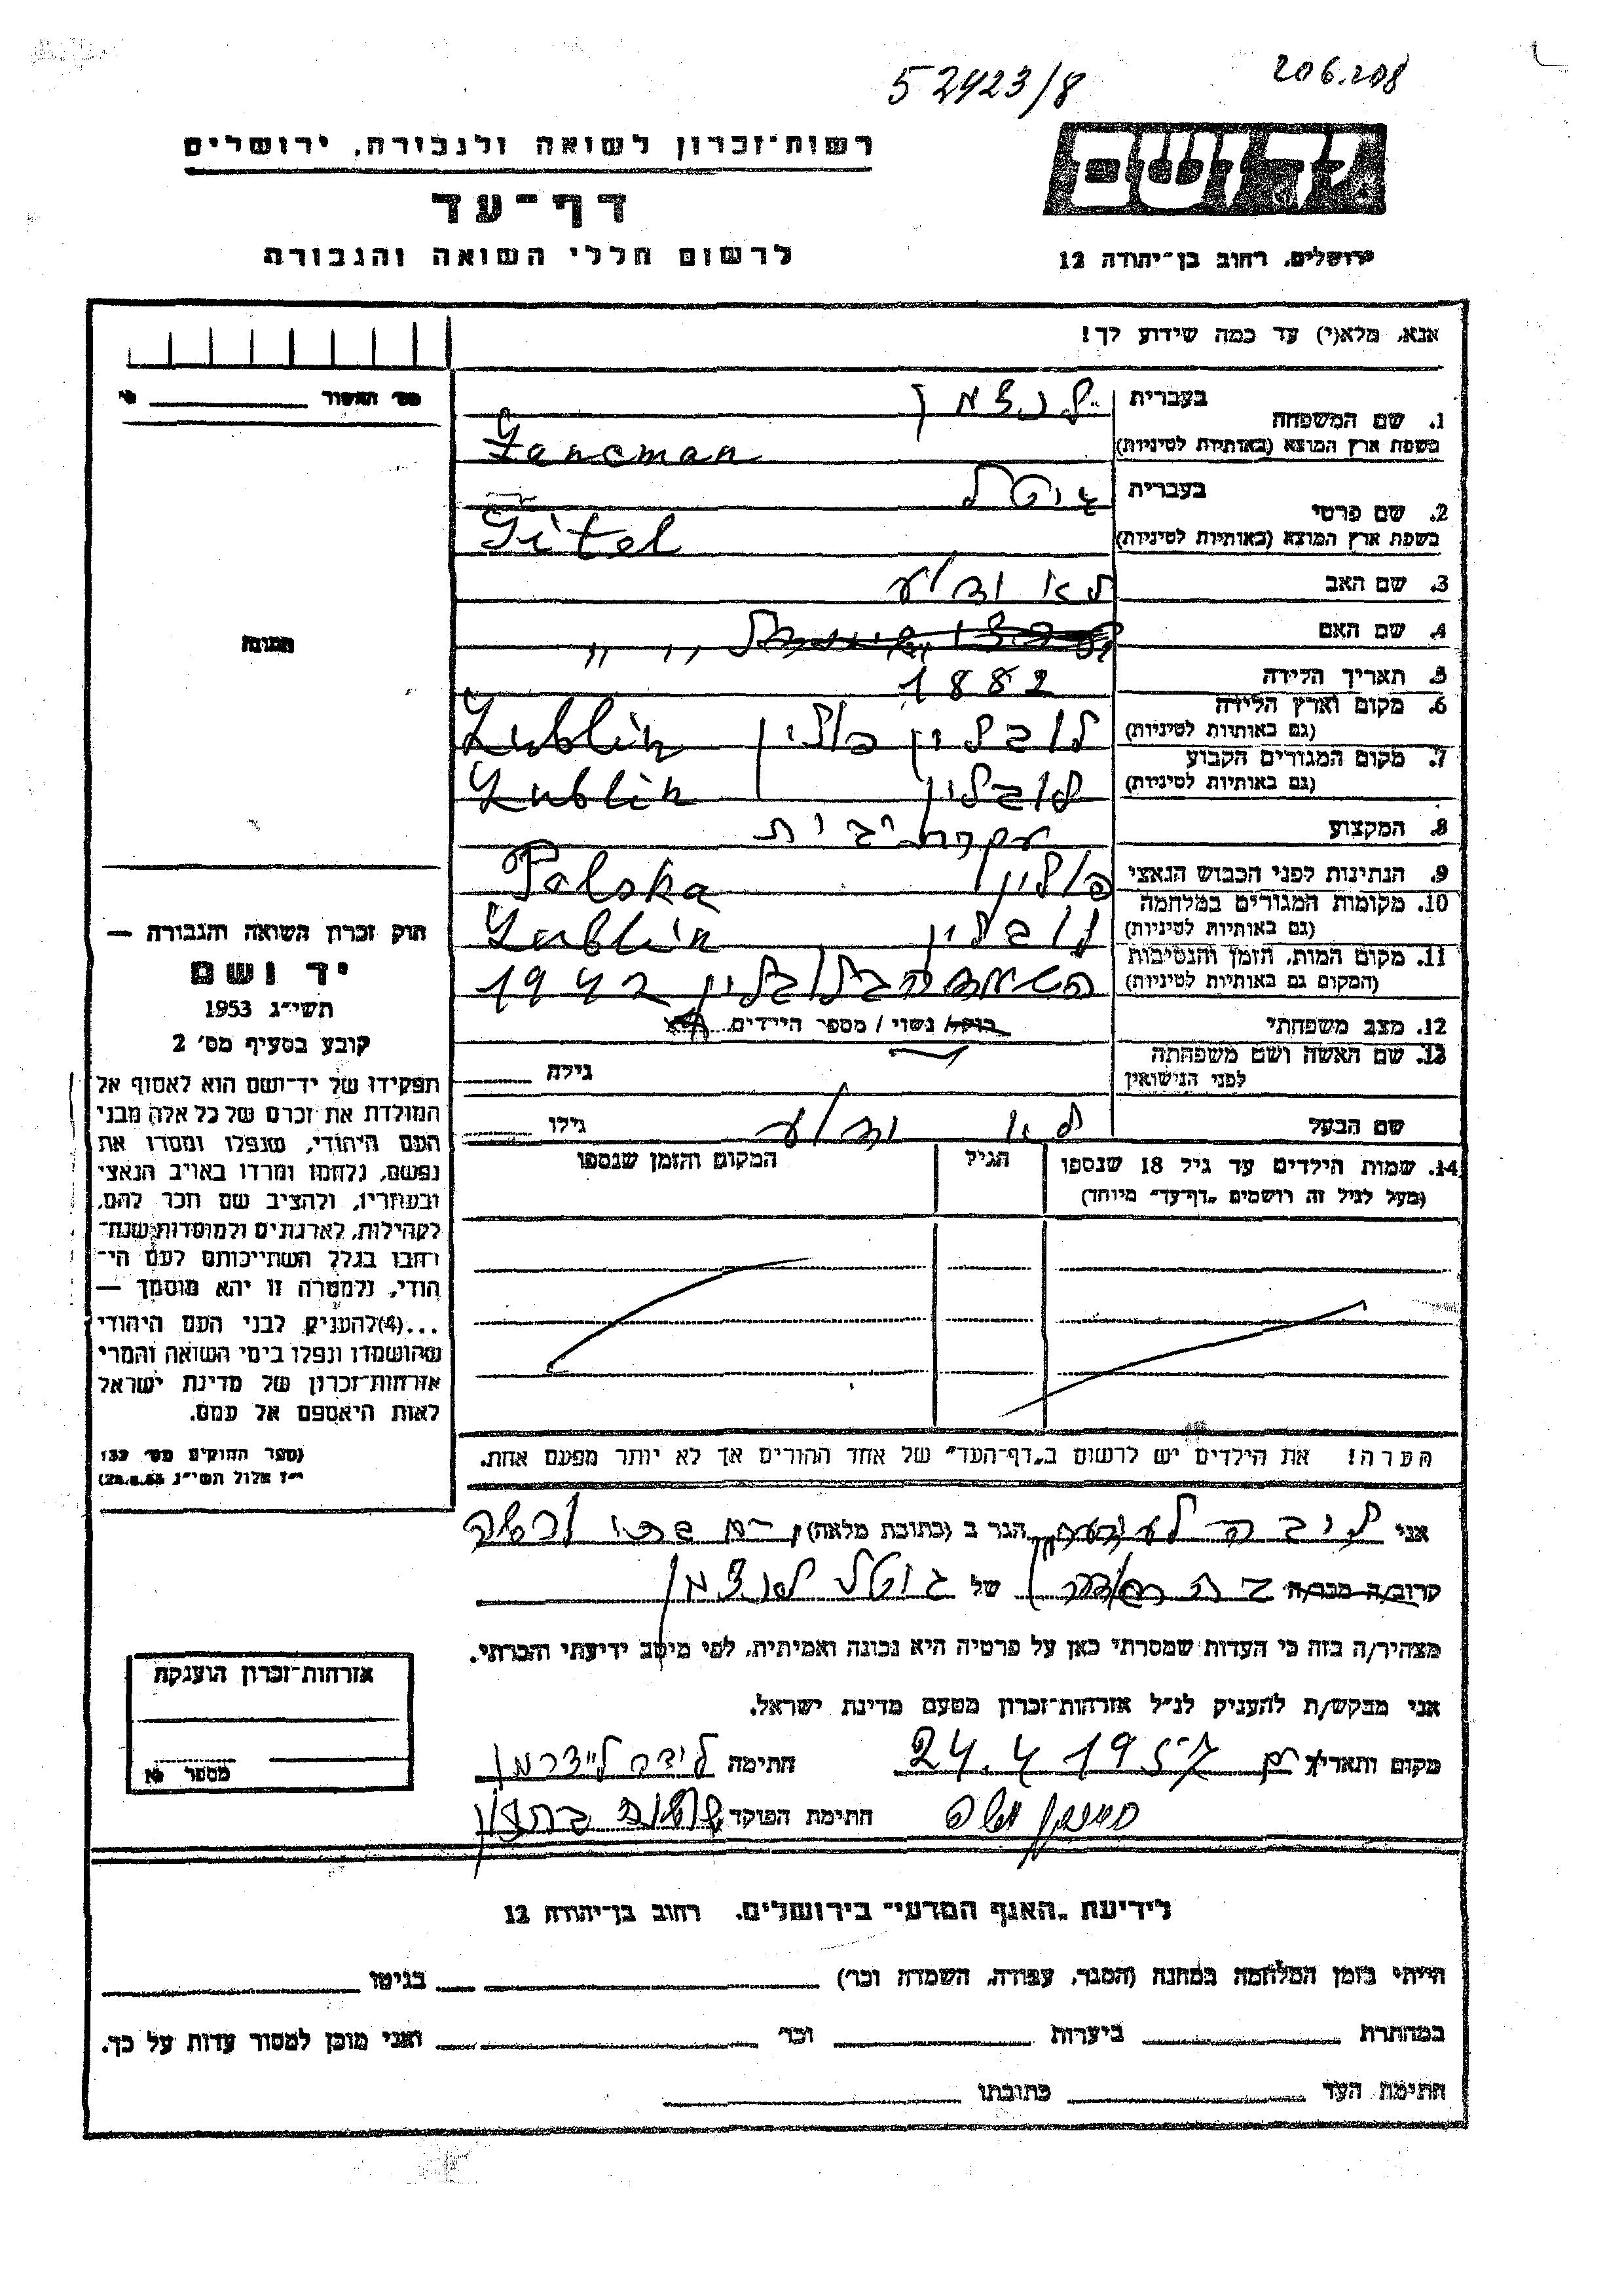 52423/8
206.208
יד ושם
רשות־זכרון לשואה ולגבורה, ירושלים
דף־עד
לרשום חללי השואה והגבורה
ירושלים, רחוב בן־יהודה 12
אנא, מלא(י) עד כמה שידוע לך!
מס' האשור
1. שם המשפחה
בעברית לנצמן
בשפת ארץ המוצא (באותיות לטיניות) Lancman
2. שם פרטי
בעברית גיטל
בשפת ארץ המוצא (באותיות לטיניות) Gitel
3. שם האב לא ידוע
4. שם האם ״ ״
5. תאריך הלידה 1882
6. מקום וארץ הלידה (גם באותיות לטיניות) לובלין פולין Lublin
7. מקום המגורים הקבוע (גם באותיות לטיניות) לובלין Lublin
8. המקצוע עקרת בית
9. הנתינות לפני הכבוש הנאצי פולין Polska
10. מקומות המגורים במלחמה (גם באותיות לטיניות) לובלין Lublin
11. מקום המות, הזמן והנסיבות (המקום גם באותיות לטיניות) בלובלין 1942
12. מצב משפחתי רוק/ה / נשוי / מספר הילדים
13. שם האשה ושם משפחתה לפני הנישואין גילה
שם הבעל לא ידוע גילו
14. שמות הילדים עד גיל 18 שנספו הגיל המקום והזמן שנספו
(מעל לגיל זה רושמים „דף־עד״ מיוחד)
הערה! את הילדים יש לרשום ב„דף־העד״ של אחד ההורים אך לא יותר מפעם אחת.
תמונה
חוק זכרון השואה והגבורה —
יד ושם
תשי״ג 1953
קובע בסעיף מס׳ 2
תפקידו של יד־ושם הוא לאסוף אל
המולדת את זכרם של כל אלה מבני
העם היהודי, שנפלו ומסרו את
נפשם, נלחמו ומרדו באויב הנאצי
ובעוזריו, ולהציב שם וזכר להם,
לקהילות, לארגונים ולמוסדות שנח־
רבו בגלל השתייכותם לעם הי־
הודי, ולמטרה זו יהא מוסמך —
...(4) להעניק לבני העם היהודי
שהושמדו ונפלו בימי השואה והמרי
אזרחות־זכרון של מדינת ישראל
לאות היאספם אל עמם.
(ספר החוקים מס׳ 132
י״ז אלול תשי״ג 28.8.53)
אני הגר ב (כתובת מלאה)
קרוב/ה מכר/ה של גיטל לנצמן
מצהיר/ה בזה כי העדות שמסרתי כאן על פרטיה היא נכונה ואמיתית, לפי מיטב ידיעתי והכרתי.
אני מבקש/ת להעניק לנ״ל אזרחות־זכרון מטעם מדינת ישראל.
מקום ותאריך 24.4.1957 חתימה
חתימת הפוקד
אזרחות־זכרון הוענקה
מספר
לידיעת „האגף המדעי״ בירושלים, רחוב בן־יהודה 12
הייתי בזמן המלחמה במחנה (הסגר, עבודה, השמדה וכר') בגיטו
במחתרת ביערות וכר' ואני מוכן למסור עדות על כך.
חתימת העד כתובתו